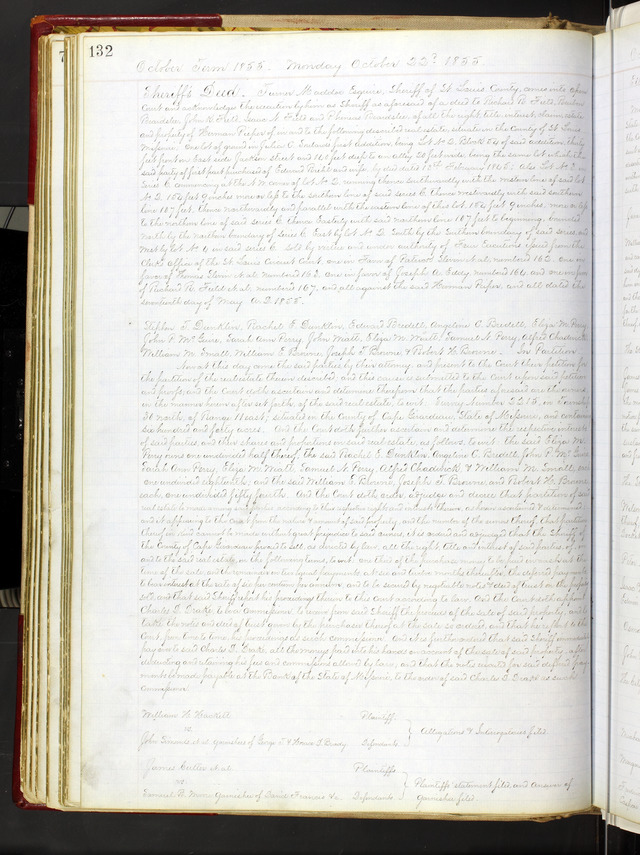 132
October Term 1855. Monday October 22d 1855.
Sheriff's Deed. James Maddox Esquire, Sheriff of St Louis County, comes into open
Court and acknowledges the execution by him as Sheriff as aforesaid of a deed to Richard B. Field,
John B. Field, Isaac N. Field and of all the right, title, interest, claim, estate
and property of Herman of in and to the following described real estate, situate in the County of St Louis
Missouri. One lot of ground in Julia C. addition, being Lot No 2, Block 54 of said addition, thirty
feet front on East side Jackson street and 140 feet depth to an alley 20 feet wide, being the same lot which the
said party of first part purchased of Edward and wife by deed dated February 1846. Also Lot No 2 in
series C. commencing at the N. W. corner of lot No 2, running thence southwardly with the western line of said lot
No 2, 156 feet 9 inches more or less to the southern line of said series C. thence westwardly with said southern
line 187 feet, thence northwardly and parallel with the western line of this lot 156 feet 9 inches, more or less
to the northern line of said series C. thence Eastwardly with said northern line 187 feet to beginning, bounded
north by the northern boundary of series C. East by lot No 2. South by the Southern boundary of said series and
West by lot No in said series C. sold by virtue and under authority of Four Executions issued from the
Clerk's Office of the St Louis Circuit Court. one in favor of et al. numbered 162, one in
favor of Thomas et al. numbered 192. one in favor of Joseph A. Eddy, numbered 164, and one in favor
of Richard B. Field et al. numbered 167. and all against the said Herman and all dated the
seventeenth day of May A.D. 1855.
Stephen T. Dunklin, Rachel E. Dunklin, Edward Bredell, Angeline C. Bredell, Eliza M. Perry
John P. McGuire, Sarah Ann Perry, John Matt, Eliza M. Matt, Samuel N. Perry, Alfred Chadwick
William M. Small, William E. Browne, Joseph T. Browne, & Robert H. Browne. In Partition
Now at this day come the said parties by their attorney, and present to the Court their petition for
the partition of the real estate therein described, and this cause is submitted to the Court upon said petition
and proofs, and the Court doth ascertain and determine therefrom that the parties named are the owners
in the manner hereinafter set forth, of the said real estate, to wit: Survey number 2215, in Township
30 north, of Range 11 east, situated in the County of Cape Girardeau, State of Missouri, and containing
six hundred and forty acres. And the Court doth further ascertain and determine the respective interests
of said parties, and their shares and proportions in said real estate, as follows, to wit: the said Eliza M.
Perry owns one undivided half thereof, the said Rachel E. Dunklin, Angeline C. Bredell, John P. McGuire
Sarah Ann Perry, Eliza M. Matt, Samuel N. Perry, Alfred Chadwick & William M. Small, each
one undivided eighteenth, and the said William E. Browne, Joseph T. Browne, and Robert H. Browne
each, one undivided fifty fourth. And the Court doth order, adjudge and decree that partition of said
real estate be made among said parties, according to their respective rights and interests therein, as herein ascertained & determined
and it appearing to the Court from the nature & amount of said property, and the number of the owners thereof that partition
thereof in kind cannot be made without great prejudice to said owners, it is ordered and adjudged that the Sheriff of
the County of Cape Girardeau proceed to sell, as directed by law, all the right title and interest of said parties, of, in
and to the said real estate, on the following terms, to wit: one third of the purchase money to be paid in cash at the
time of the sale and the residue in two equal payments at six and twelve months thereafter, the deferred payments
to bear interest at the rate of six per centum per annum, and to be secured by negotiable notes & deed of trust on the property
sold, and that said Sheriff report his proceedings therein to this Court according to law. And the Court doth appoint
Charles D. Drake, to be Commissioner to receive from said Sheriff the proceeds of the sale of said property, and to
take the notes and deed of trust given by the purchaser thereof at the sale so ordered, and that he report to this
Court from time to time, his proceedings as such commissioner. and it is further ordered that said Sheriff immediately
pay over to said Charles D. Drake, all the moneys paid into his hands on account of the sale of said property, after
deducting and retaining his fees and commissions allowed by law, and that the notes executed for said deferred pay-
ments be made payable at the Bank of the State of Missouri, to the order of said Charles D. Drake as such
Commissioner.
William H. Haskell Plaintiff
vs. Allegations & Interrogatories filed.
John Simonds et al. Garnishees of George T. & Brady Defendants
James Cutter et al. Plaintiffs
vs. Plaintiffs statement filed, and Answer of
Samuel B. Moore Garnishee of David Francis &c Defendants Garnishee filed.